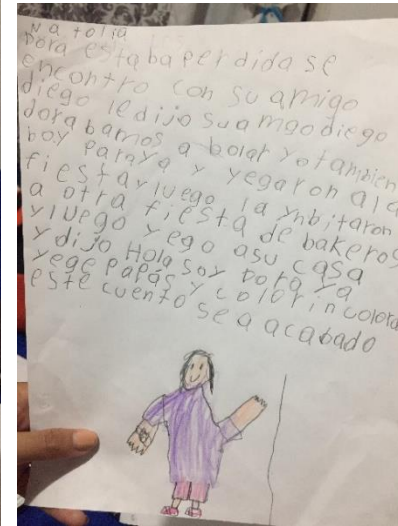 Natolia
Dora estaba perdida se
encontro con su amigo
diego le dijo su amgo diego
dora bamos a bolar yo tambien
boy para ya y yegaron ala
fiesta y luego la ynbitaron
a otra fiesta de bakeros
y luego yego asu casa
y dijo Hola soy Dora ya
yege papás y colorin colora
este cuento se a acabado